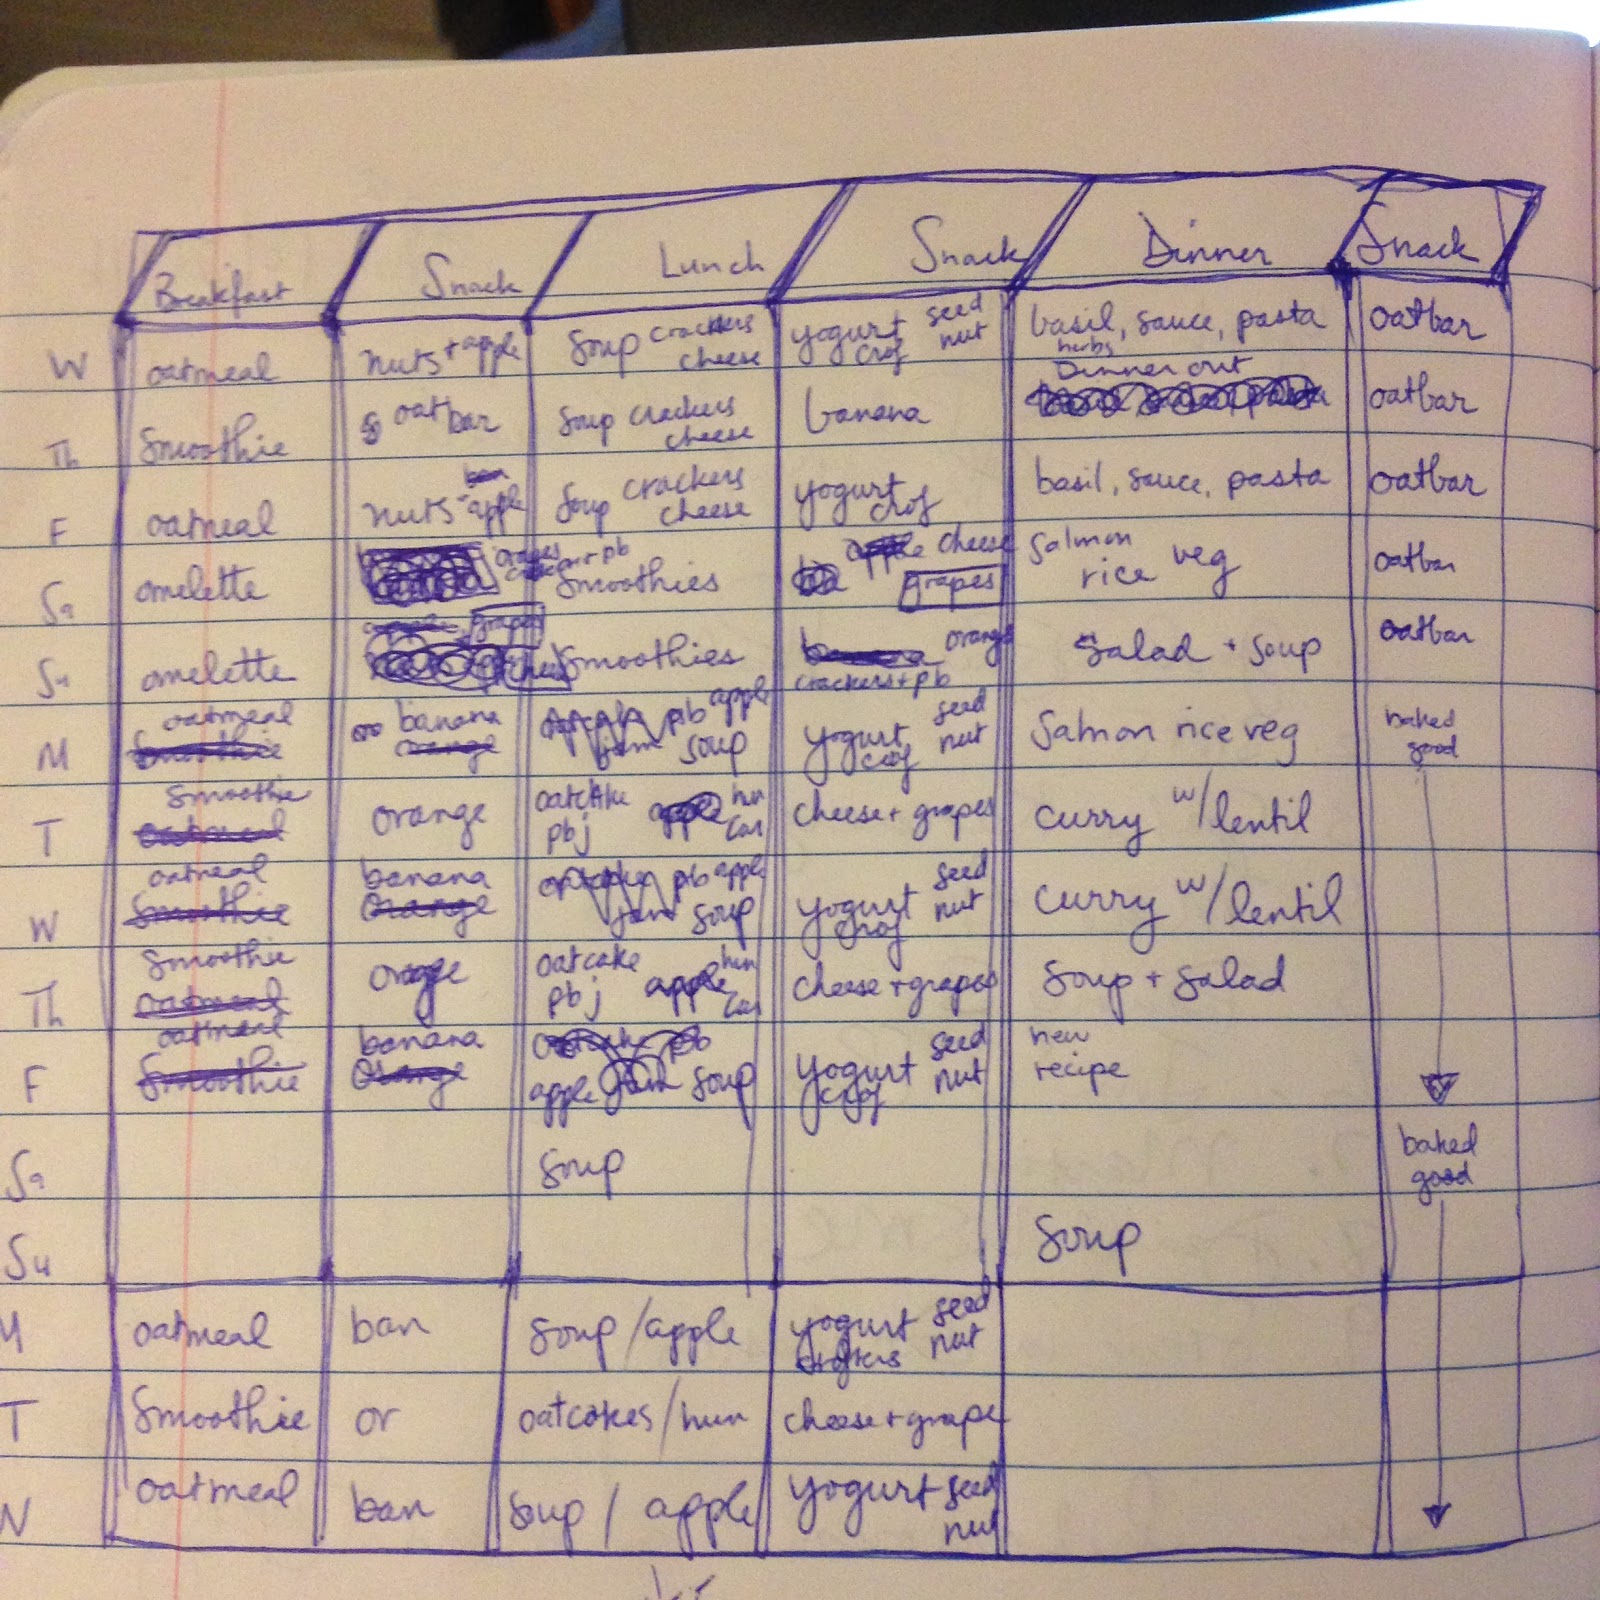 Breakfast Snack Lunch Snack Dinner Snack
W oatmeal nuts + apple Soup crackers cheese yogurt seed nut basil, sauce, pasta herbs oatbar
Th Smoothie oat bar Soup crackers cheese banana Dinner out oatbar
F oatmeal nuts apple Soup crackers cheese yogurt basil, sauce, pasta oatbar
Sa omelette + pb Smoothies cheese grapes Salmon rice veg oatbar
Su omelette grapes Smoothies orange crackers + pb Salad + Soup oatbar
M oatmeal Smoothie banana orange pb apple jam soup yogurt seed nut Salmon rice veg baked good
T Smoothie oatmeal orange oatcake pbj apple hum car cheese + grapes curry w/ lentil
W oatmeal Smoothie banana orange pb apple jam soup yogurt seed nut curry w/ lentil
Th Smoothie oatmeal orange oatcake pbj apple hum car cheese + grapes Soup + Salad
F oatmeal Smoothie banana orange oatcake pb apple jam soup yogurt seed nut new recipe
Sa Soup baked good
Su Soup
M oatmeal ban Soup / apple yogurt seed nut
T Smoothie or oatcakes / hum cheese + grape
W oatmeal ban Soup / apple yogurt seed nut